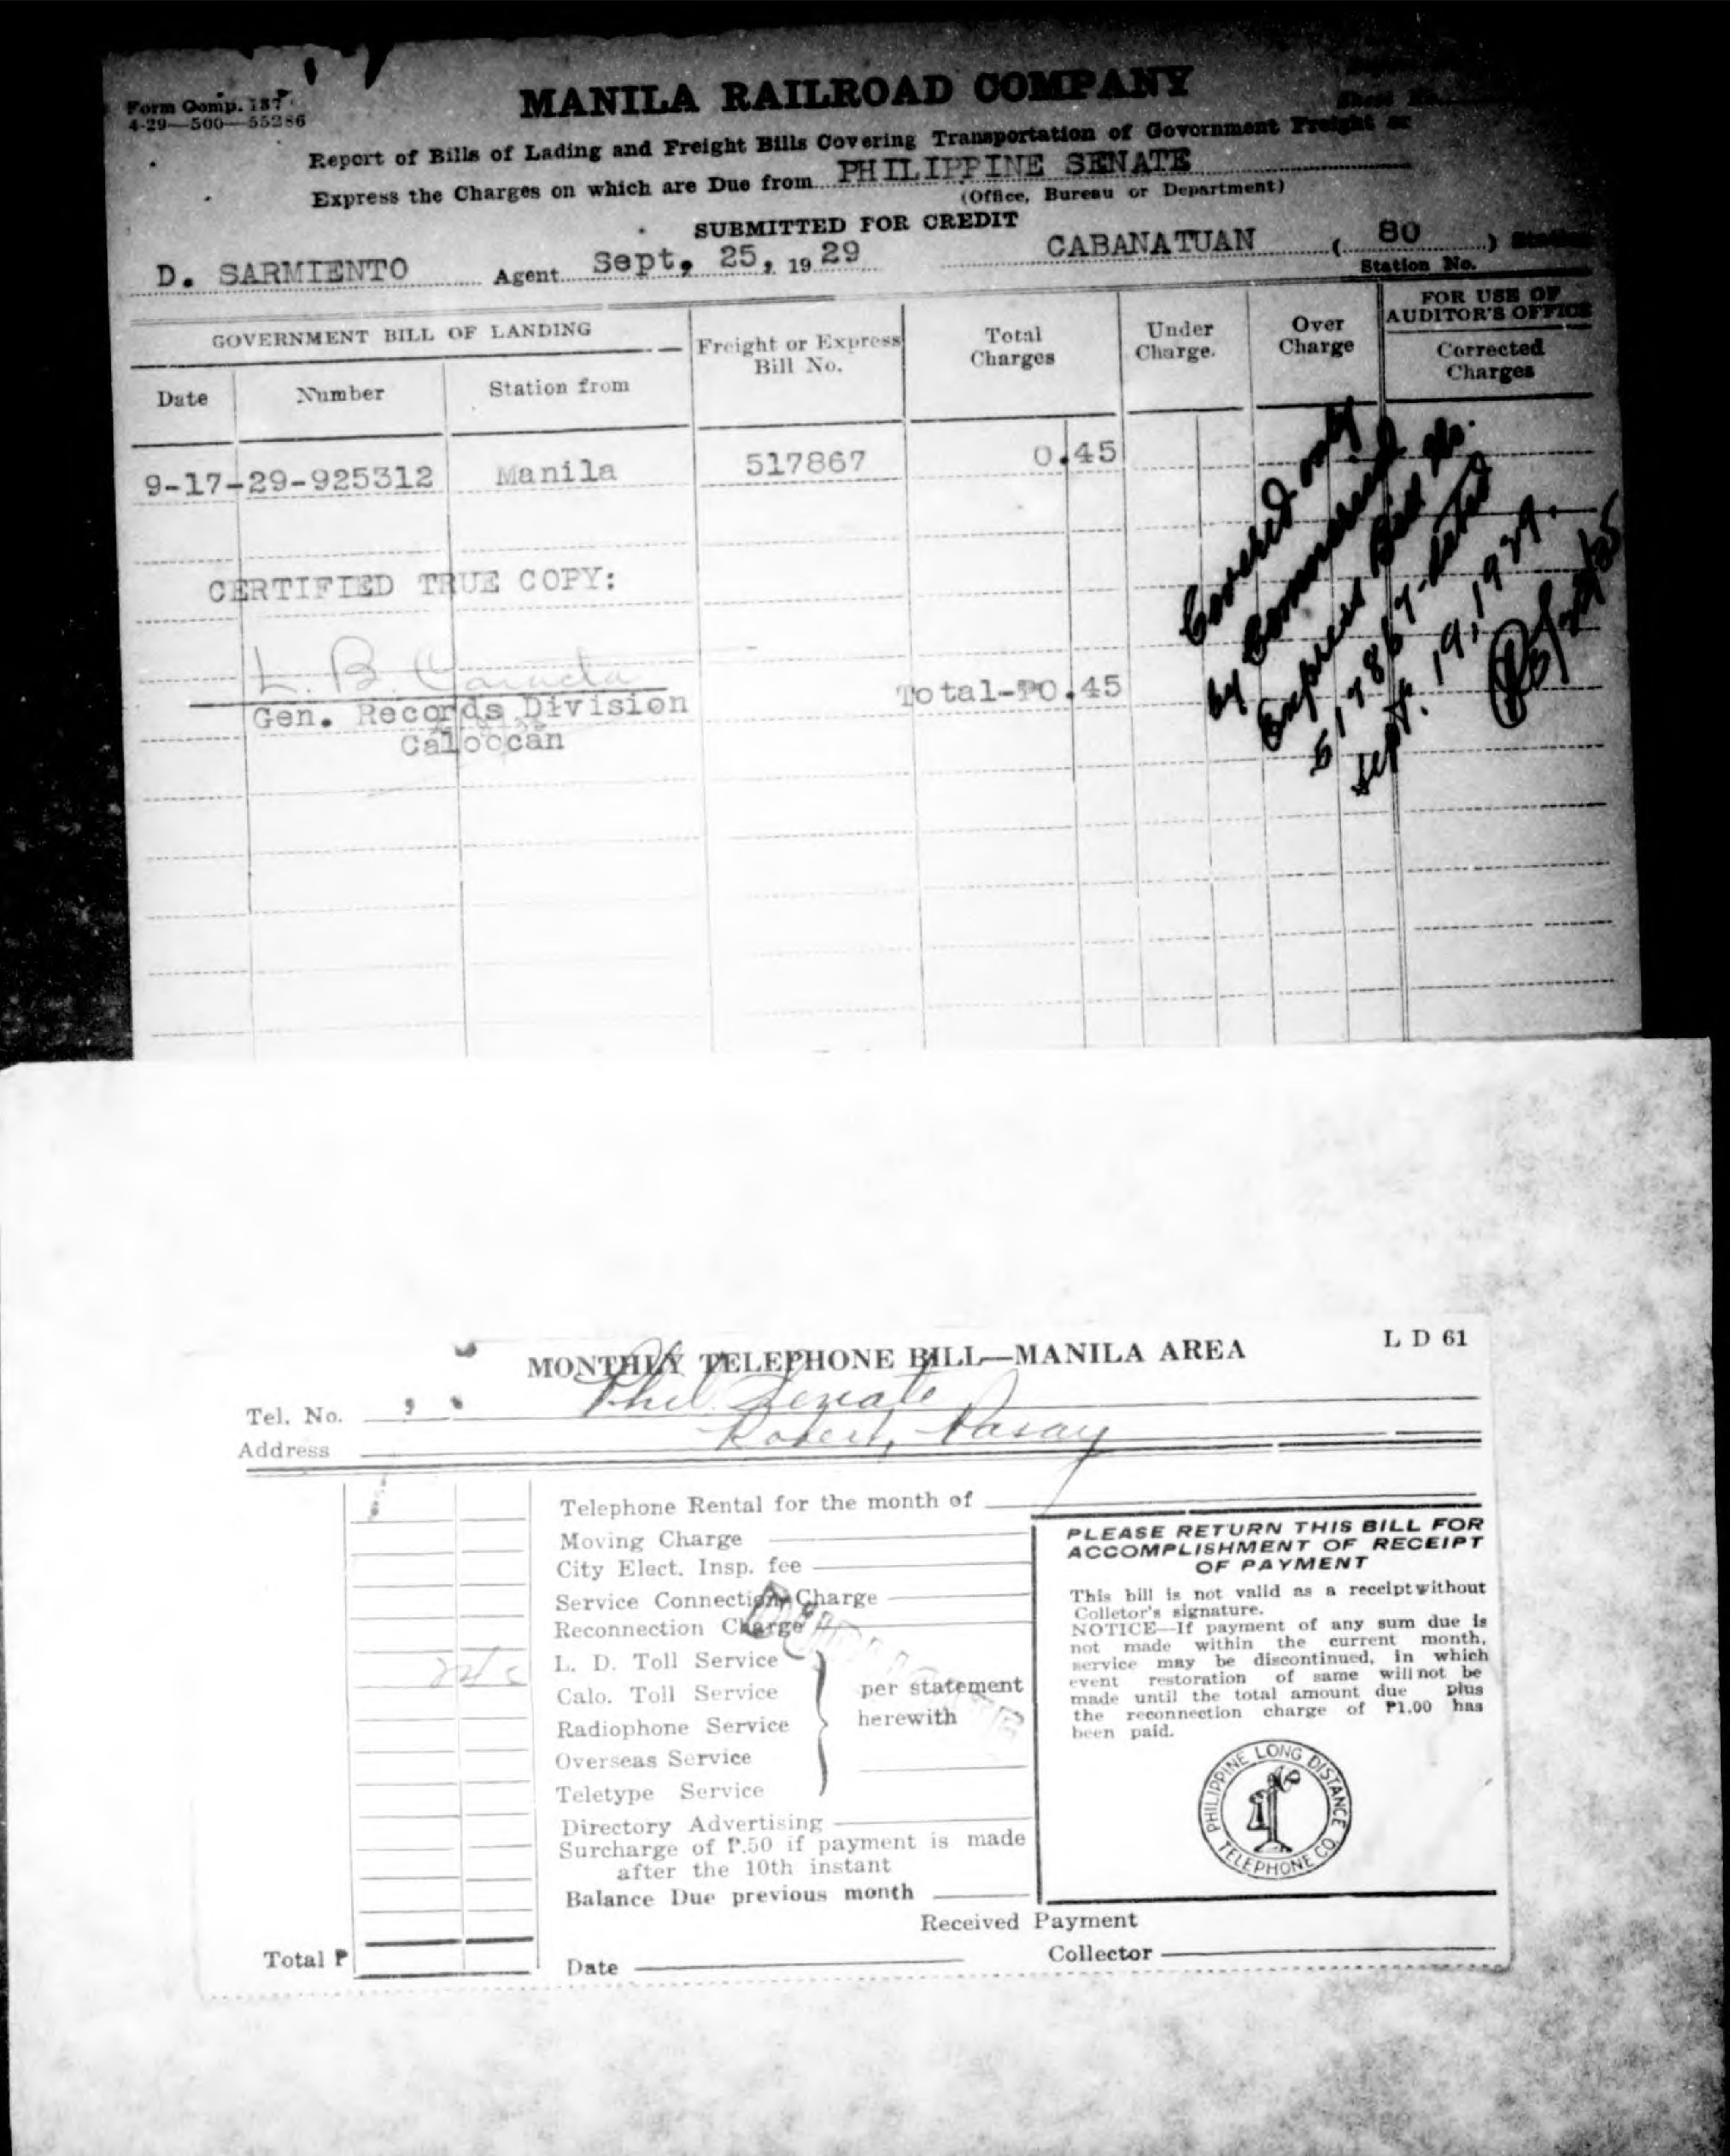 MANILA RAILROAD COMPANY
Form Comp. 137
4-29—500—55286
Report of Bills of Lading and Freight Bills Covering Transportation of Government Freight or
Express the Charges on which are Due from PHILIPPINE SENATE
(Office, Bureau or Department)
SUBMITTED FOR CREDIT
D. SARMIENTO Agent Sept. 25, 1929 CABANATUAN ( 80 ) Station
Station No.
GOVERNMENT BILL OF LANDING
Date Number Station from
Freight or Express
Bill No.
Total
Charges
Under
Charge.
Over
Charge
FOR USE OF
AUDITOR'S OFFICE
Corrected
Charges
9-17-29-925312 Manila 517867 0.45
CERTIFIED TRUE COPY:
L. B.
Gen. Records Division
Caloocan
Total-P0.45
Covered only
by Commercial
Express Bill No.
517867-dated
Sept. 19, 1929.
MONTHLY TELEPHONE BILL—MANILA AREA
L D 61
Tel. No. Phil. Senate
Address Robert, Pasay
Telephone Rental for the month of
Moving Charge
City Elect. Insp. fee
Service Connection Charge
Reconnection Charge
L. D. Toll Service
Calo. Toll Service
Radiophone Service
Overseas Service
Teletype Service
per statement
herewith
Directory Advertising
Surcharge of ₱.50 if payment is made
after the 10th instant
Balance Due previous month
PLEASE RETURN THIS BILL FOR
ACCOMPLISHMENT OF RECEIPT
OF PAYMENT
This bill is not valid as a receipt without
Colletor's signature.
NOTICE—If payment of any sum due is
not made within the current month,
service may be discontinued, in which
event restoration of same will not be
made until the total amount due plus
the reconnection charge of ₱1.00 has
been paid.
PHILIPPINE LONG DISTANCE
TELEPHONE CO.
Received Payment
Total ₱
Date
Collector